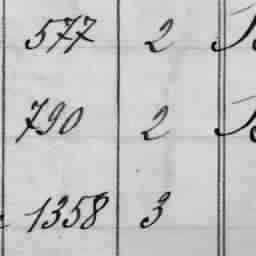 577 2
790 2
1358 3